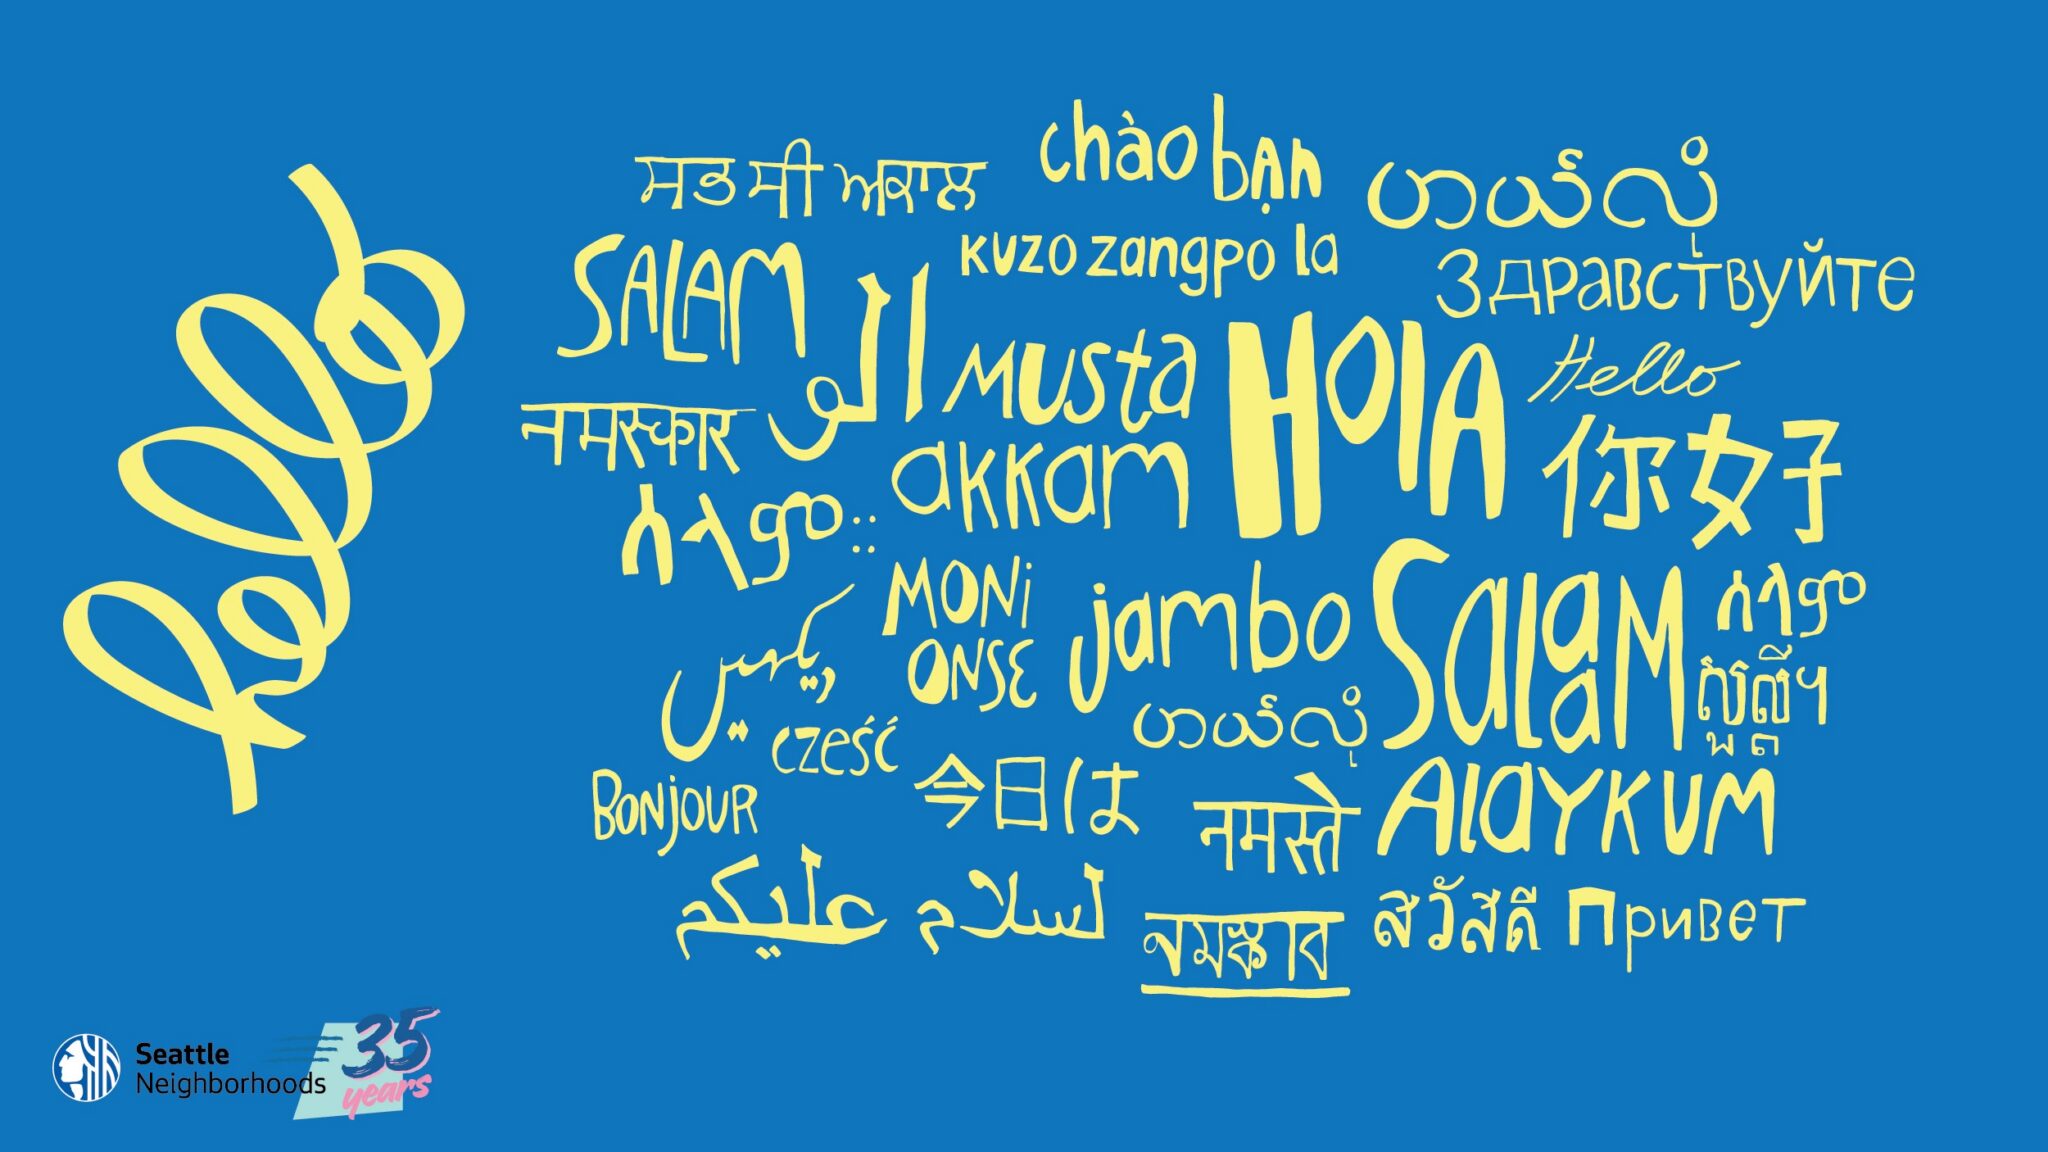 Hello
ਸਤ ਸੀ ਅਕਾਲ
chào bạn
ဟယ်လို
SALAM
الو
kuzo zangpo la
Здравствуйте
Musta
HOLA
Hello
नमस्कार
akkam
你好
ሰላም።
MONI
ONSE
jambo
Salaam
Alaykum
ሰላም
cześć
ဟယ်လို
Bonjour
今日は
नमस्ते
لسلام عليكم
নমস্কার
สวัสดี
Привет
Seattle
Neighborhoods
35
years